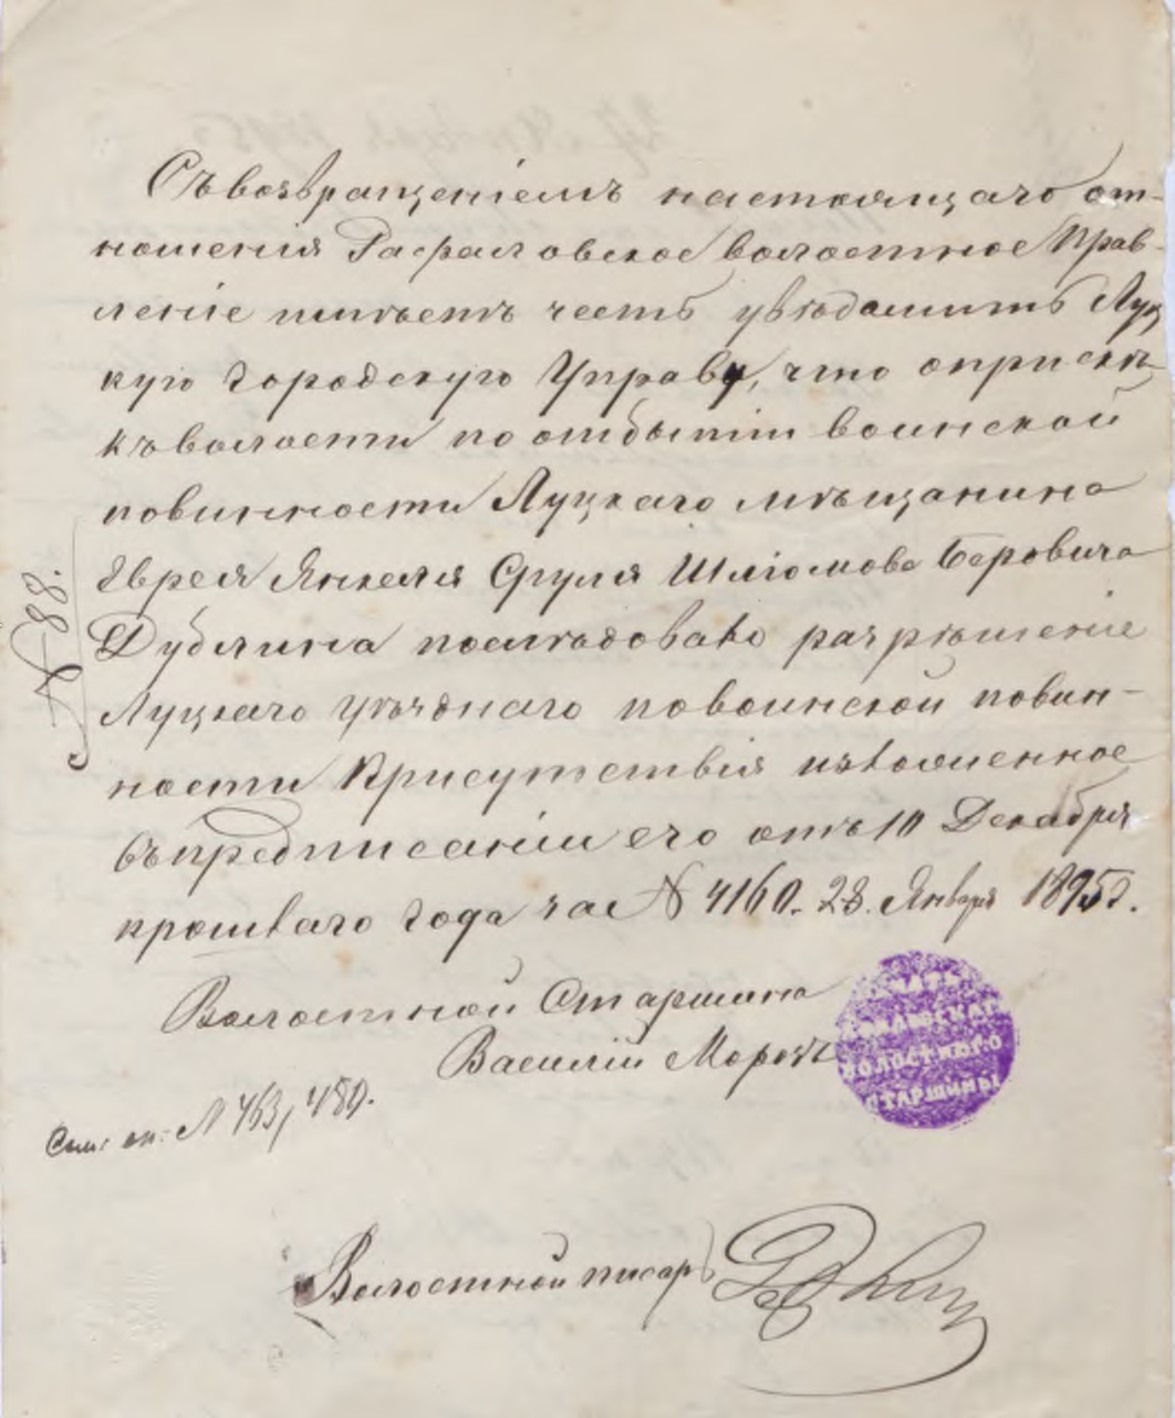 Съ возвращеніемъ настоящаго от-
ношенія Рафаловское волостное Прав-
леніе имѣетъ честь увѣдомить Луц
кую Городскую Управу, что о припискѣ
къ волости по отбытіи воинской
повинности Луцкаго мѣщанина
Еврея Янкеля Сруля Шліомова Беровича
Дублина послѣдовало разрѣшеніе
Луцкаго уѣзднаго по воинской повин-
ности Присутствія изложенное
въ предписаніи его отъ 10 Декабря
прошлаго года за № 4160. 28. Января 1895 г.
Волостной Старшина
Василій Морозъ
ВОЛОСТНАГО
СТАРШИНЫ
№ 88.
оп: № 463/480.
Волостной писарь